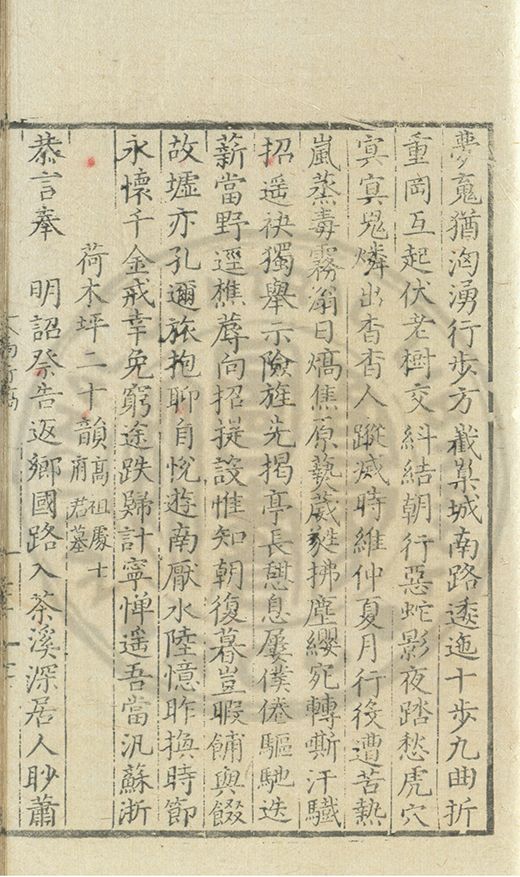 夢䰟猶洶湧行步方巀嵲城南路逶迤十步九曲折
重岡互起伏老樹交糾結朝行惡蛇影夜踏愁虎穴
冥冥鬼燐出杳杳人蹤滅時維仲夏月行役遭苦熱
嵐蒸毒霧滃日熇焦原爇葳蕤拂塵纓宛轉嘶汗驖
招遥袂獨舉示險旌先揭亭長憇息屢僕倦驅馳迭
薪當野逕樵蓐向招提設惟知朝復暮豈暇餔與餟
故墟亦孔邇旅抱聊自悅遊南厭水陸憶昨換時節
永懷千金戒幸免窮途跌歸計寧憚遥吾當汎蘇浙
荷木坪二十韻高祖處士府君墓
恭言奉　明詔祭告返鄉國路入茶溪深居人眇蕭